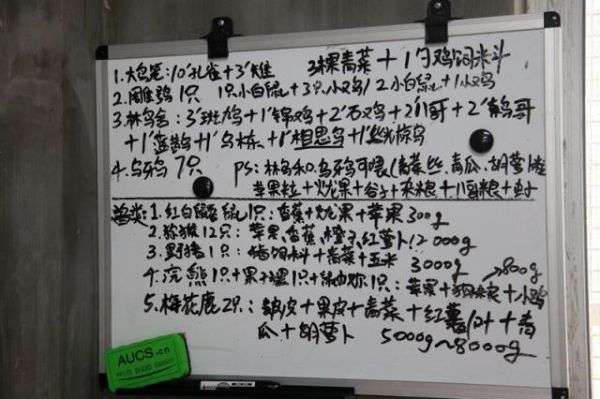 1.大鸟笼:10'孔雀+3'雉 3棵青菜+1勺鸡饲米斗
2.雕鸮1只 1只小白鼠+3只小鸡/2小白鼠+1小鸡
3.林鸟舍:3'斑鸠+1'锦鸡+2'石鸡+2'八哥+2'鹩哥
+1'蓝鹊+1'乌鸫+1'相思鸟+1'丝光椋鸟
4.乌鸦7只 PS:林鸟和乌鸦可喂(青菜丝、青瓜、胡萝卜粒
苹果粒+火龙果+谷子+杂粮+八哥粮+虫子
兽类:1.红白鼯鼠1只:香蕉+火龙果+苹果300g
2.猕猴12只:苹果、香蕉、橙子、红萝卜12000g
3.野猪1只:猪饲料+青菜+玉米 3000g
4.浣熊1只+果子狸1只+ 1只:苹果+狗粮+小鸡 800g
5.梅花鹿2只: 皮+果皮+青菜+红薯叶+青
瓜+胡萝卜 5000g~8000g
AUCS-cn